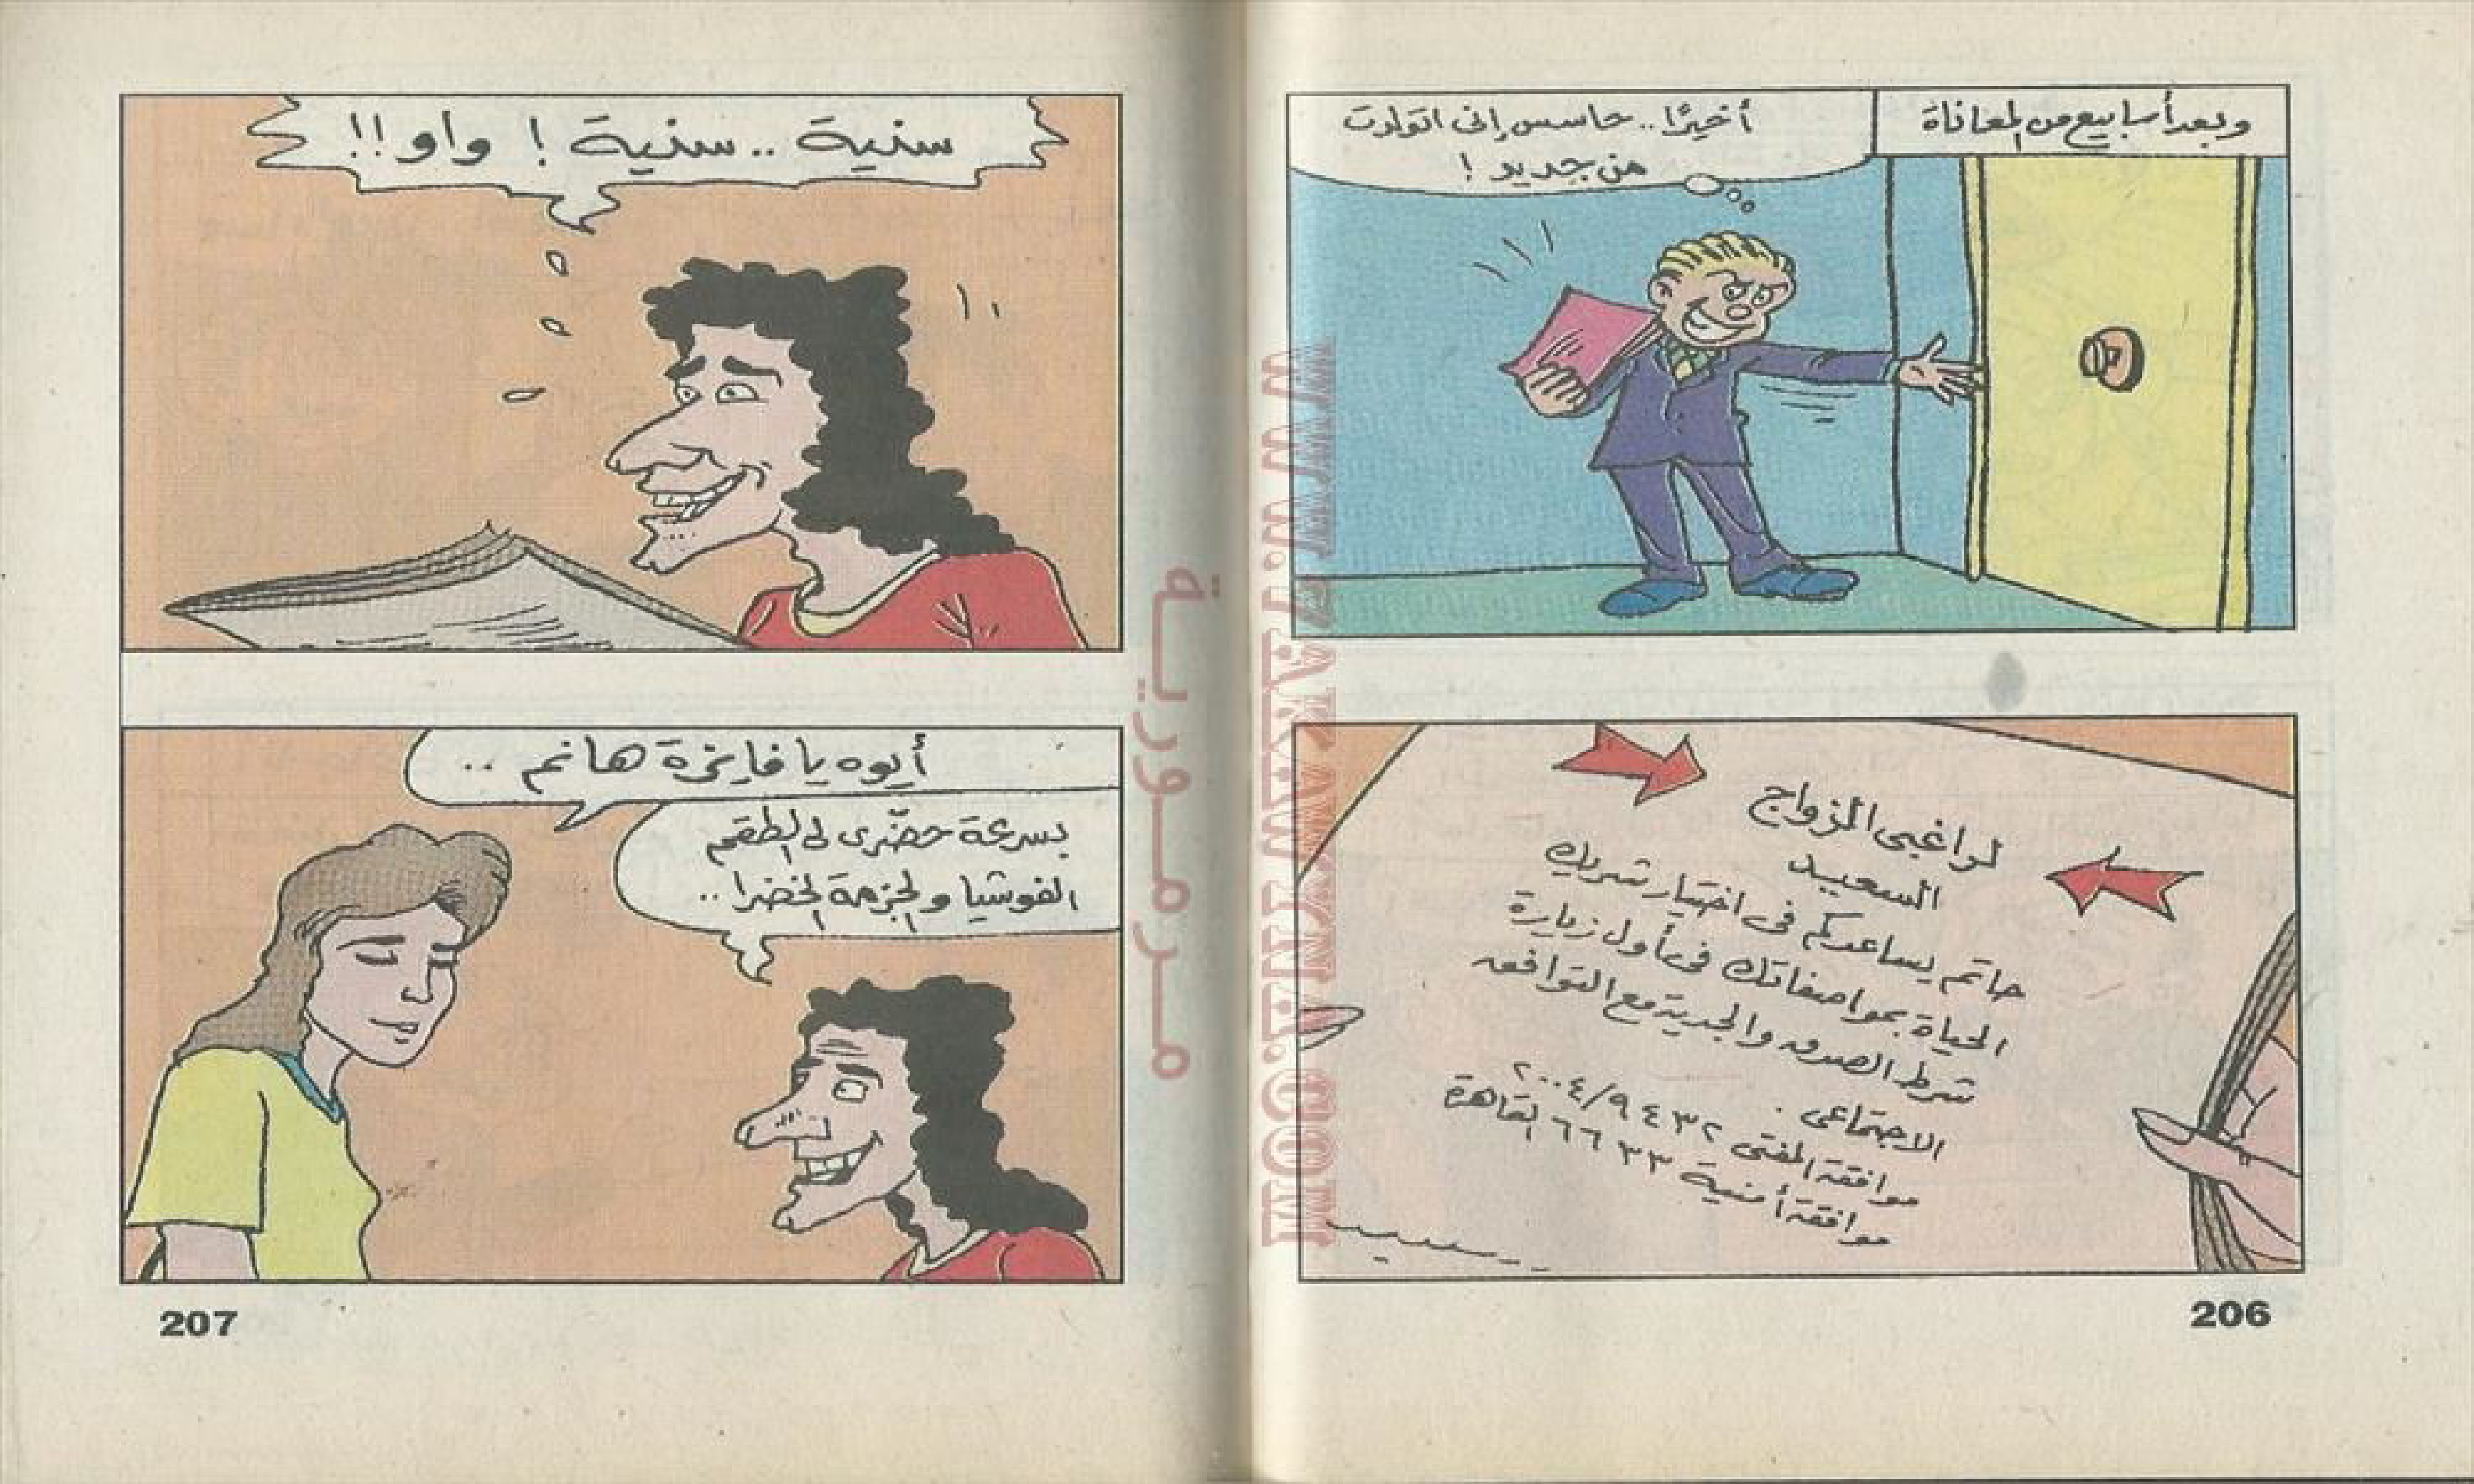 وبعد أسابيع من المعاناة
أخيرًا.. حاسس إنى اتولدت
من جديد !
لراغبى الزواج
السعيد
حاتم يساعدكم فى اختيار شريك
الحياة بمواصفاتك فى أول زيارة
شرط الصدق والجدية مع التوافق
الاجتماعى .
موافقة المفتى ٩٤٣٢/٢٠٠٤
موافقة أمنية ٦٦٣٣ القاهرة
206
سنية .. سنية ! واو !!
أيوه يا فايزة هانم ..
بسرعة حضّرى لى الطقم
الفوشيا والجزمة الخضرا ..
207
مرمورية